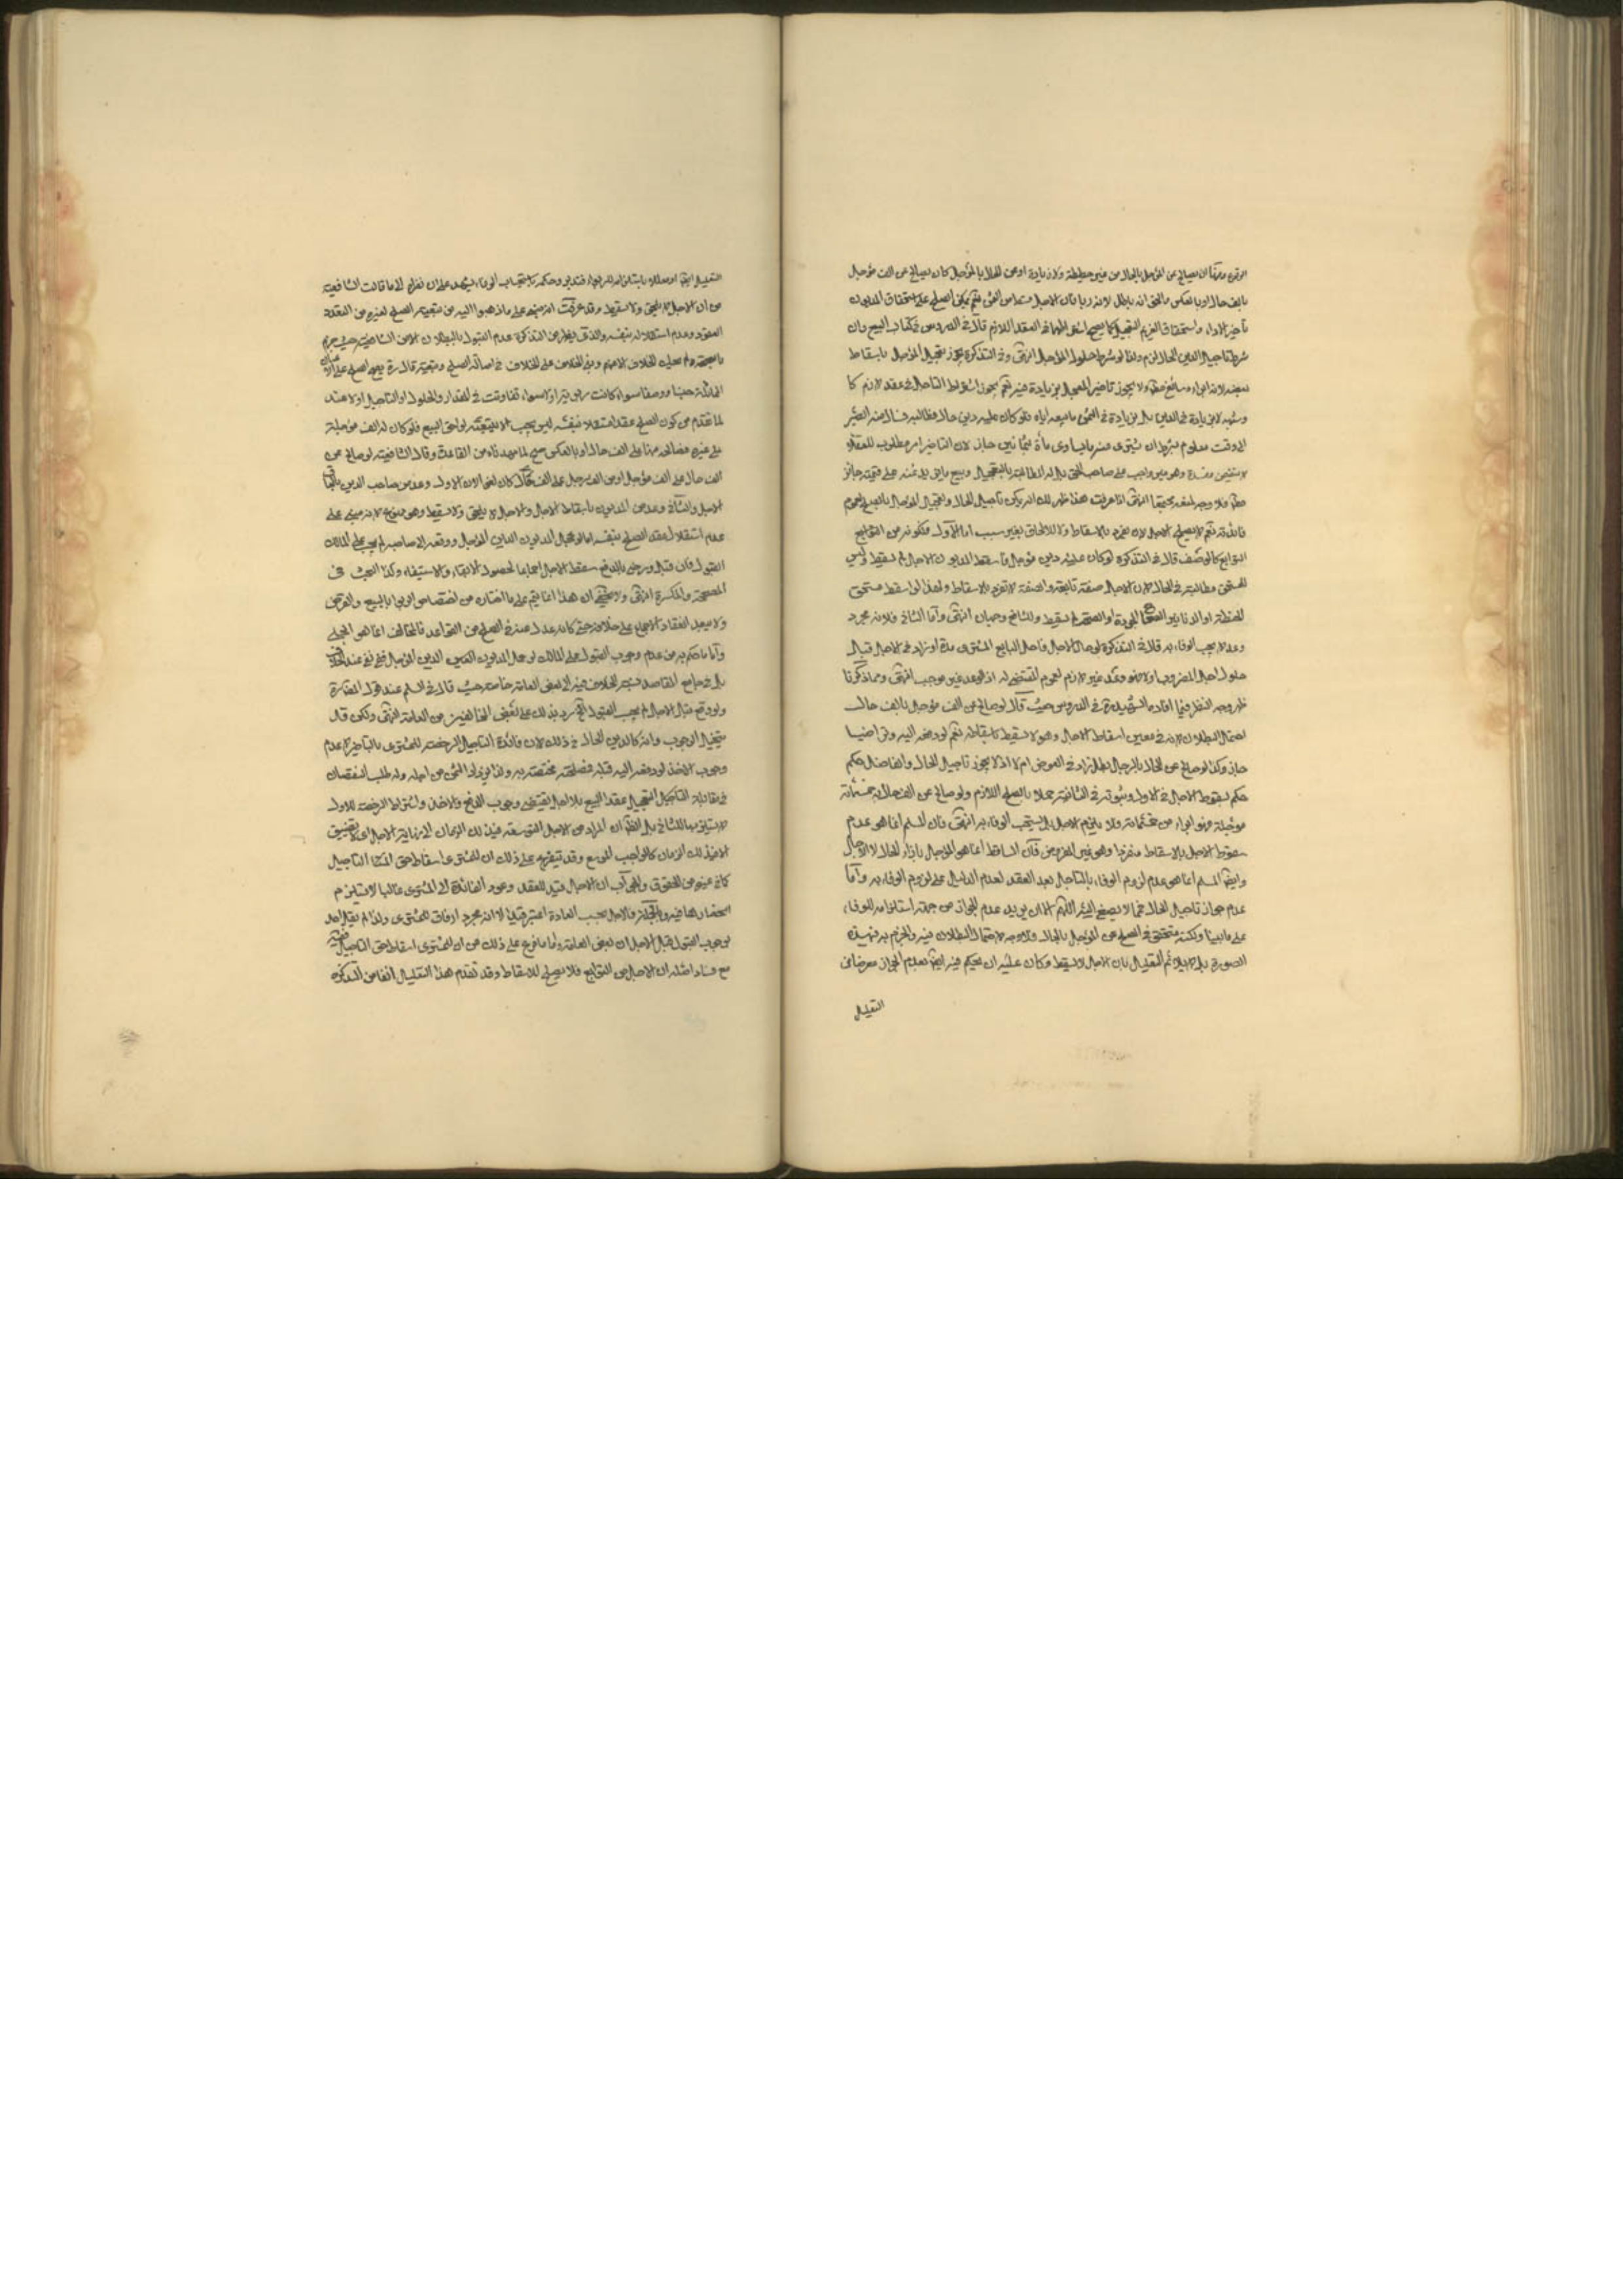 ان يصالح عن المؤجل بالحال من غير حطيطة ولا زيادة او عن الحال بالمؤجل كان يصالح عن الف مؤجل
بالف حال او بالعكس والحق انه باطل لانه ربا فان الاجل من الثمن نعم يمكن الصلح على استحقاق المديون
تأخير الاداء واستحقاق الغريم التعجيل كما يصح اشتراطهما في العقد اللازم قال في الدروس في كتاب البيع وان
شرط تاجيل الدين الحال لزم وكذا لو شرط حلول المؤجل انتهى وفي التذكرة يجوز تعجيل المؤجل باسقاط
بعضه لانه ابراء سائغ ولا يجوز تاخير المعجل بزيادة فيه نعم يجوز اشتراط التاجيل في عقد لازم كا
لا بزيادة في الدين بل بزيادة في الثمن ما يبيعه اياه فلو كان عليه دين حال فطالبه فسال منه الصبر
الى وقت معلوم بشرط ان يشترى منه ما يساوى مأة بثمانين جاز لان التاخير امر مطلوب للعقلاء
لا يتضمن مفسدة وهو غير واجب على صاحب الحق بل له المطالبة بالتعجيل وبيع ما يزيد ثمنه على قيمته جائز
فلا وجه لمنعه مجتمعا انتهى اذا عرفت هذا ظهر لك انه يمكن تأجيل الحال وتعجيل المؤجل بالصلح لعموم
نعم لا يصلح الاجل لان يفرد بالاسقاط ولا للالحاق بغير سبب اما الاول فلكونه من التوابع
كالوصف قال في التذكرة لو كان عليه دين مؤجل فاسقط المديون الاجل لم يسقط وليس
للمستحق مطالبته في الحال لان الاجل صفة تابعة والصفة لا تفرد بالاسقاط ولهذا لو اسقط مستحق
الحنطة او الدنانير الصحاح الجودة او الصحة لم يسقط وللشافعي وجهان انتهى واما الثاني فلانه مجرد
وعد لا يجب الوفاء به قال في التذكرة لو حال الاجل فاجل البايع المشترى مدة او زاد في الاجل قبل
حلول الاجل المضروب اولا فهو وعد غير لازم لعموم المقتضى له اذ الوعد غير موجب انتهى ومما ذكرنا
ظهر وجه النظر فيما افاده الشهيد في الدروس حيث قال لو صالح عن الف مؤجل بالف حال
احتمل البطلان لانه في معنى اسقاط الاجل وهو لا يسقط باسقاطه نعم لو دفعه اليه وتراضيا
جاز وكذا لو صالح عن الحال بالمؤجل بطل زاد في العوض ام لا اذ لا يجوز تاجيل الحال والفاضل حكم
حكم بسقوط الاجل في الاول وثبوته في الثاني عملا بالصلح اللازم ولو صالح عن الف حال بخمسمائة
مؤجلة فهو ابراء من خمسمائة ولا يلزم الاجل بل يستحب الوفاء به انتهى فان المسلم انما هو عدم
سقوط الاجل بالاسقاط منفردا وهو غير المفروض فان الساقط انما هو المؤجل بازاء الحال لا الاجل
وايضا المسلم انما هو عدم لزوم الوفاء بالتاجيل بعد العقد لعدم الدليل على لزوم الوفاء به واما
عدم جواز تاجيل الحال فما لا يصغى اليه اللهم الا ان يريد عدم الجواز من جهة استلزامه للوفاء
على ما بينا ولكنه متحقق في الصلح عن المؤجل بالحال فلا وجه لاحتمال البطلان فيه والجزم به في هذه
الصورة بل لا يلائم التعليل بان الاجل لا يسقط وكان عليه ان يحكم فيه ايضا بعدم الجواز معرضا عن
التعليل
التعليل ايضا او معللا باستلزامه للربوا فتدبر وحكمه باستحباب الوفاء يشهد على ان نظره الى ما قالت الشافعية
من ان الاجل لا يلحق ولا يسقط وقد عرفت انه مبنى على ما ذهبوا اليه من تبعية الصلح لغيره من العقود
وعدم استقلاله بنفسه والذى يظهر من التذكرة عدم القبول بالبطلان الا من الشافعية حيث جزم
بالصحة ولم يحك الخلاف الا منهم وبنى الخلاف على الخلاف في اصالة الصلح وتبعيته قال ره يصح الصلح على
المماثلة جنسا ووصفا سواء كانت ربوية او لا سواء تفاوتت في المقدار والحلول او التاجيل او لا عندنا
لما تقدم من كون الصلح عقدا مستقلا بنفسه ليس يجب ان يتبعه لواحق البيع فلو كان له الف مؤجلة
على غيره فصالحه منها على الف حال او بالعكس صح لما مهدناه من القاعدة وقال الشافعية لو صالح عن
الف حال على الف مؤجل او من الف مؤجل على الف حال كان لغوا لان الاول وعد من صاحب الدين بالحاق
الاجل والثاني وعد من المديون باسقاط الاجل والاجل لا يلحق ولا يسقط وهو ممنوع لانه مبنى على
عدم استقلال عقد الصلح بنفسه اما لو عجل المديون الدين المؤجل ودفعه الى صاحبه لم يجب على المالك
القبول فان قبل ورضى بالدفع سقط الاجل اجماعا لحصول الايفاء والاستيفاء وكذا البحث في
الصحيحة والمكسرة انتهى ولا يخفى ان هذا انما يتم على ما اختاره من اختصاص الربوا بالبيع والقرض
ولا يبعد انعقاد الاجماع على خلافه حتى كانه عدل عنه في الصلح من القواعد فالمخالف انما هو الحلى
واما ما حكم به من عدم وجوب القبول على المالك لو عجل المديون الدين المؤجل فلم نجد عند
بل في جامع المقاصد نسب الخلاف فيه الى بعض العامة خاصة حيث قال في السلم عند قول المصنف ره
ولو دفع قبل الاجل لم يجب القبول رد بذلك على بعض المخالفين من العامة انتهى ولكن قد
يتخيل الوجوب وانه كالدين الحال في ذلك لان فائدة التاجيل الرخصة للمشترى بالتاخير لا عدم
وجوب الاخذ لو دفعه اليه قبله فمصلحته مختصة به ولذا يزيد الثمن من اجله وله طلب النقصان
في مقابلة التعجيل عقد البيع بلا اجل يقتضى وجوب الدفع والاخذ واشتراط الرخصة للاول
لا يستلزمها للثاني بل الظ ان المراد من الاجل التوسعة في ذلك الزمان الى نهاية الاجل
الاخذ ذلك الزمان كالواجب الموسع وقد يتفرع على ذلك ان للمشترى اسقاط حق التاجيل
كما في غيره من الحقوق والجواب ان الاجل قيد للعقد وعود الفائدة الى المشترى غالبا لا يستلزم
انحصارها فيه وبالجملة فالاجل بحسب العادة اعتبر قيدا لا انه مجرد ارفاق للمشترى ولذا لم يقل احد
بوجوب القبول قبل الاجل الا بعض العامة واما ما فرع على ذلك من ان للمشترى اسقاط حق التاجيل ففيه
مع فساد اصله ان الاجل من التوابع فلا يصلح للاسقاط وقد تقدم هذا التعليل انفا من التذكرة